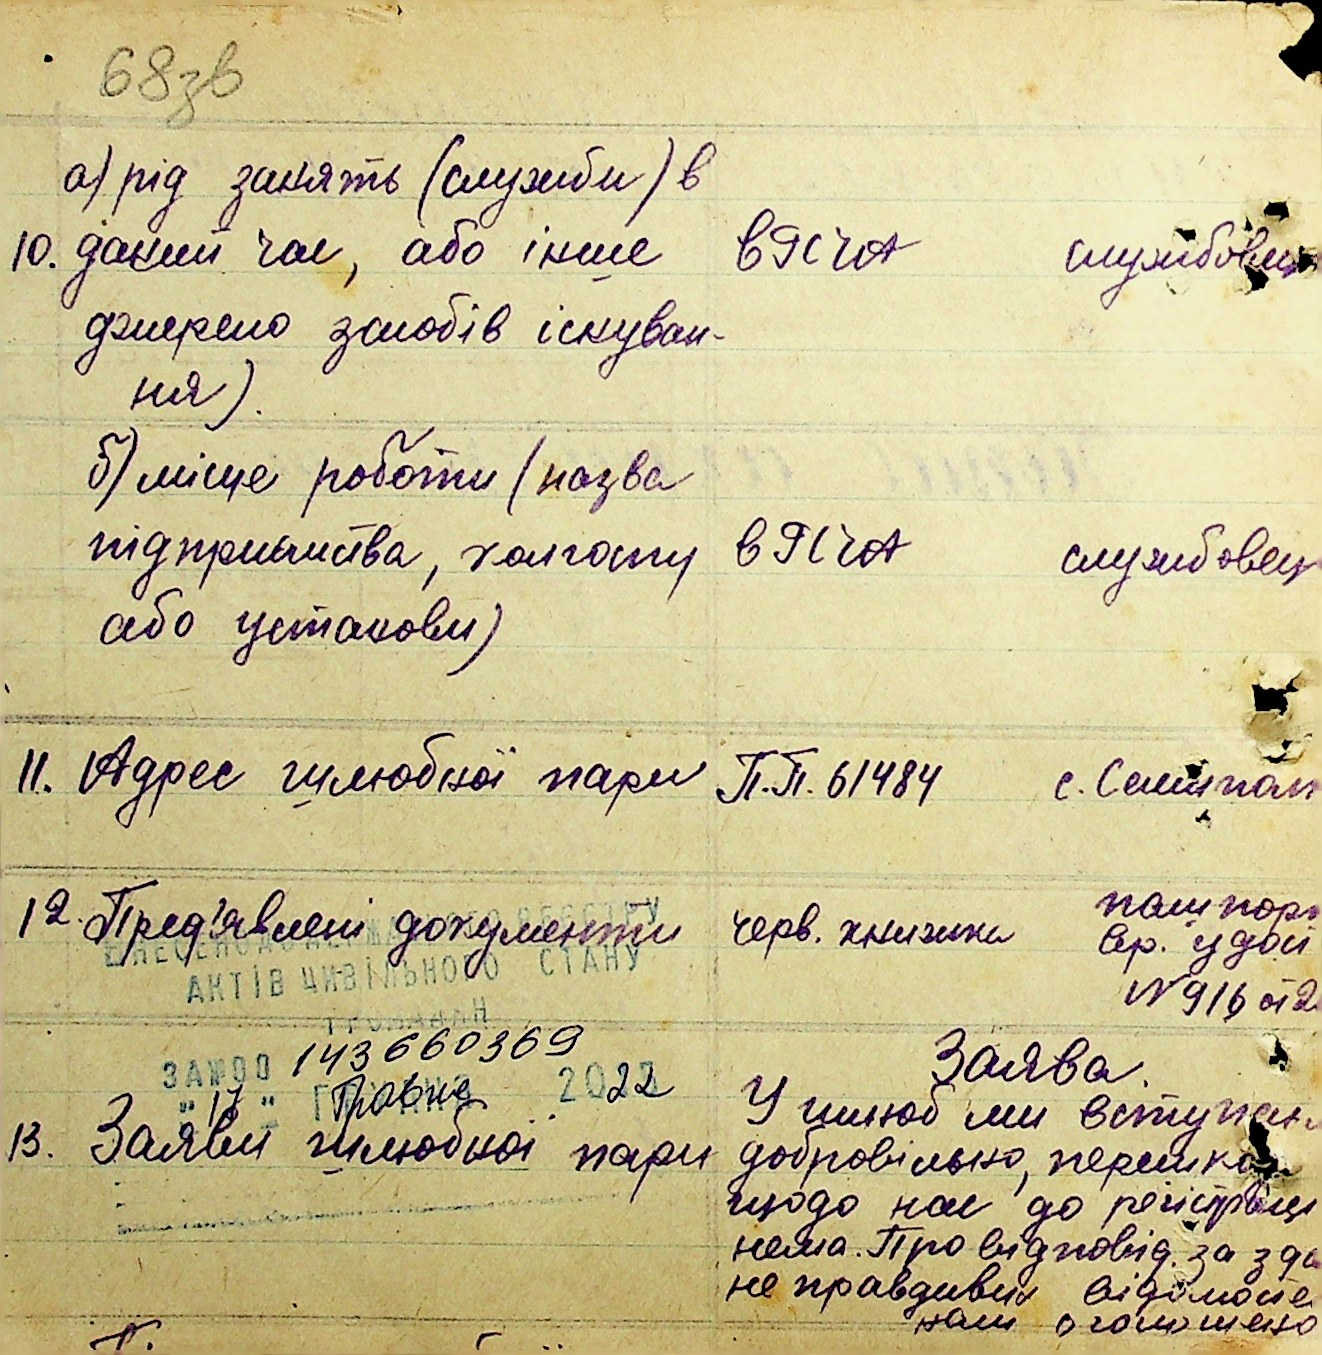 68зв
а) рід занять (служби) в
10. даний час, або інше
джерело засобів існуван-
ня).
в РСЧА
службовець
б) місце роботи (назва
підприємства, колгоспу
або установи)
в РСЧА
службовець
11. Адрес шлюбної пари
П.П. 61484
с. Семіпол
12. Пред'явлені документи
черв. книжка
паспорт
вр. удос
№916 от 2
АКТІВ ЦИВІЛЬНОГО СТАНУ
ГРОМАДЯН
143660369
17 травня 2022
13. Заяви шлюбної пари
Заява.
У шлюб ми вступаєм
добровільно, перешкод
щодо нас до регістрації
нема. Про відповід. за зда
не правдивих відомосте
нам оголошено